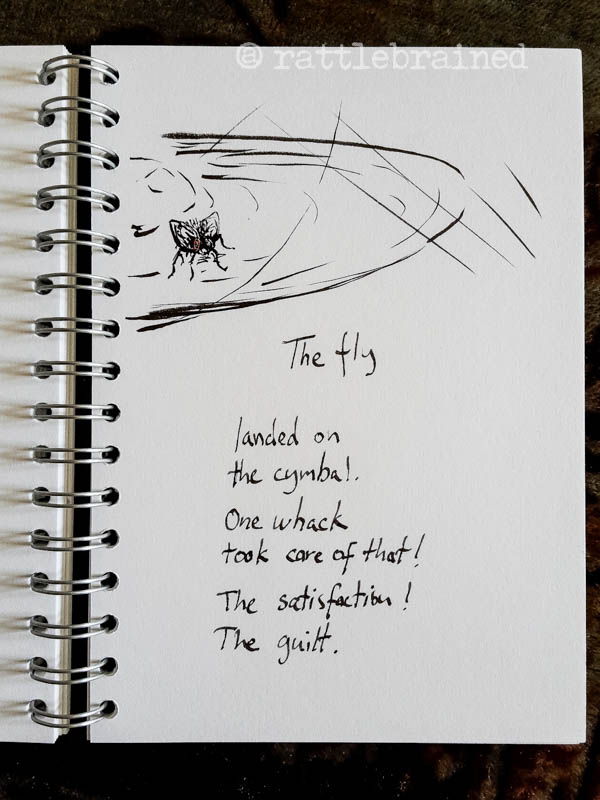 @ rattlebrained
The fly
landed on
the cymbal.
One whack
took care of that!
The satisfaction!
The guilt.